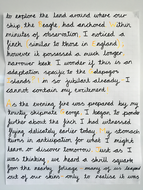 to explore the land around where our
ship the Eagle had anchored. Within
minutes of observation, I noticed a
finch similar to those in England
however it possessed a much longer
narrower beak. I wonder if this is an
adaptation specific to the Galapagos
Islands. I'm so jubilant already, I
cannot contain my excitement.
As the evening fire was prepared by my
trusty shipmate, I began to ponder
further about the finch I had witnessed
flying delicately earlier today. My stomach
turns in anticipation for what I might
learn or discover tomorrow. Just as I
was thinking, we heard a shrill squark
from the nearby foliage. Many of us leaped
out of our skins only to realise it was